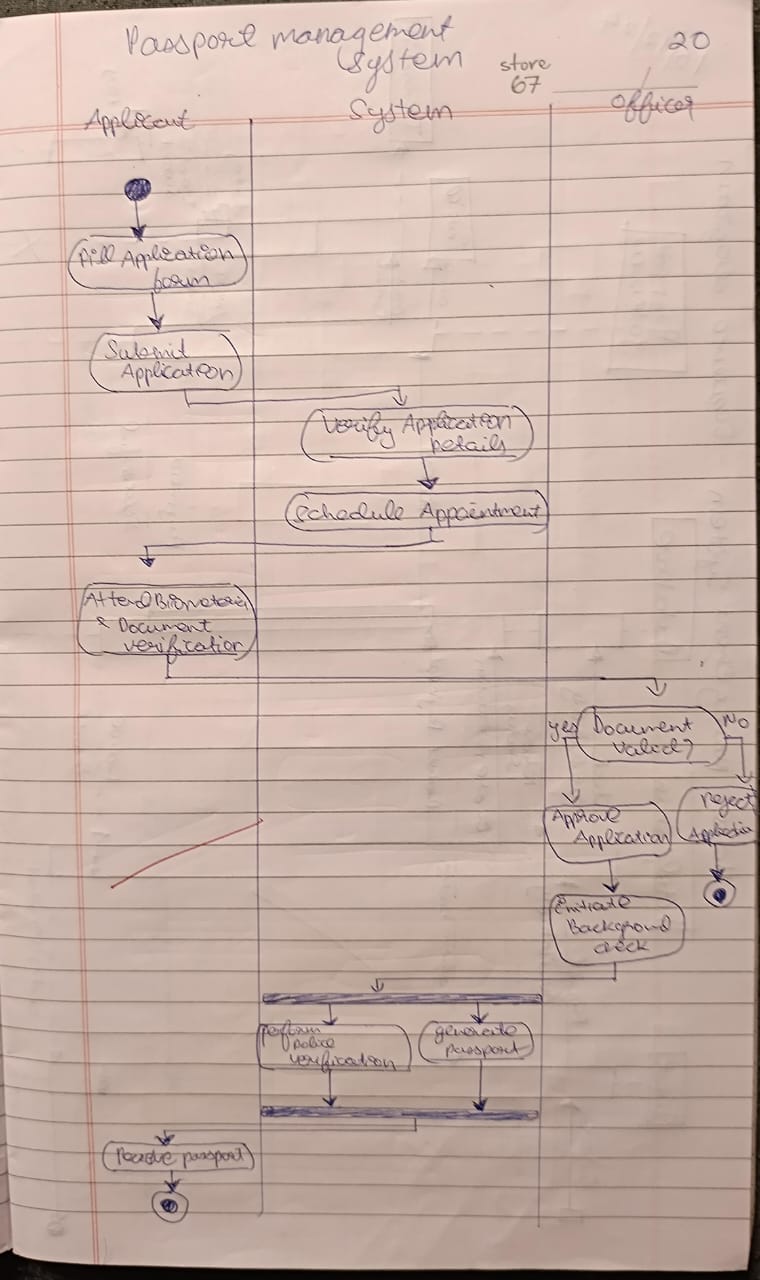 Passport management
System
20
store
67
Applicant
System
Officer
Fill Application
form
Submit
Application
Verify Application
Details
Schedule Appointment
Attend Biometric
& Document
verification
Document
Valid?
yes
No
Approve
Application
Reject
Application
Initiate
Background
check
perform
police
verification
generate
passport
Receive passport